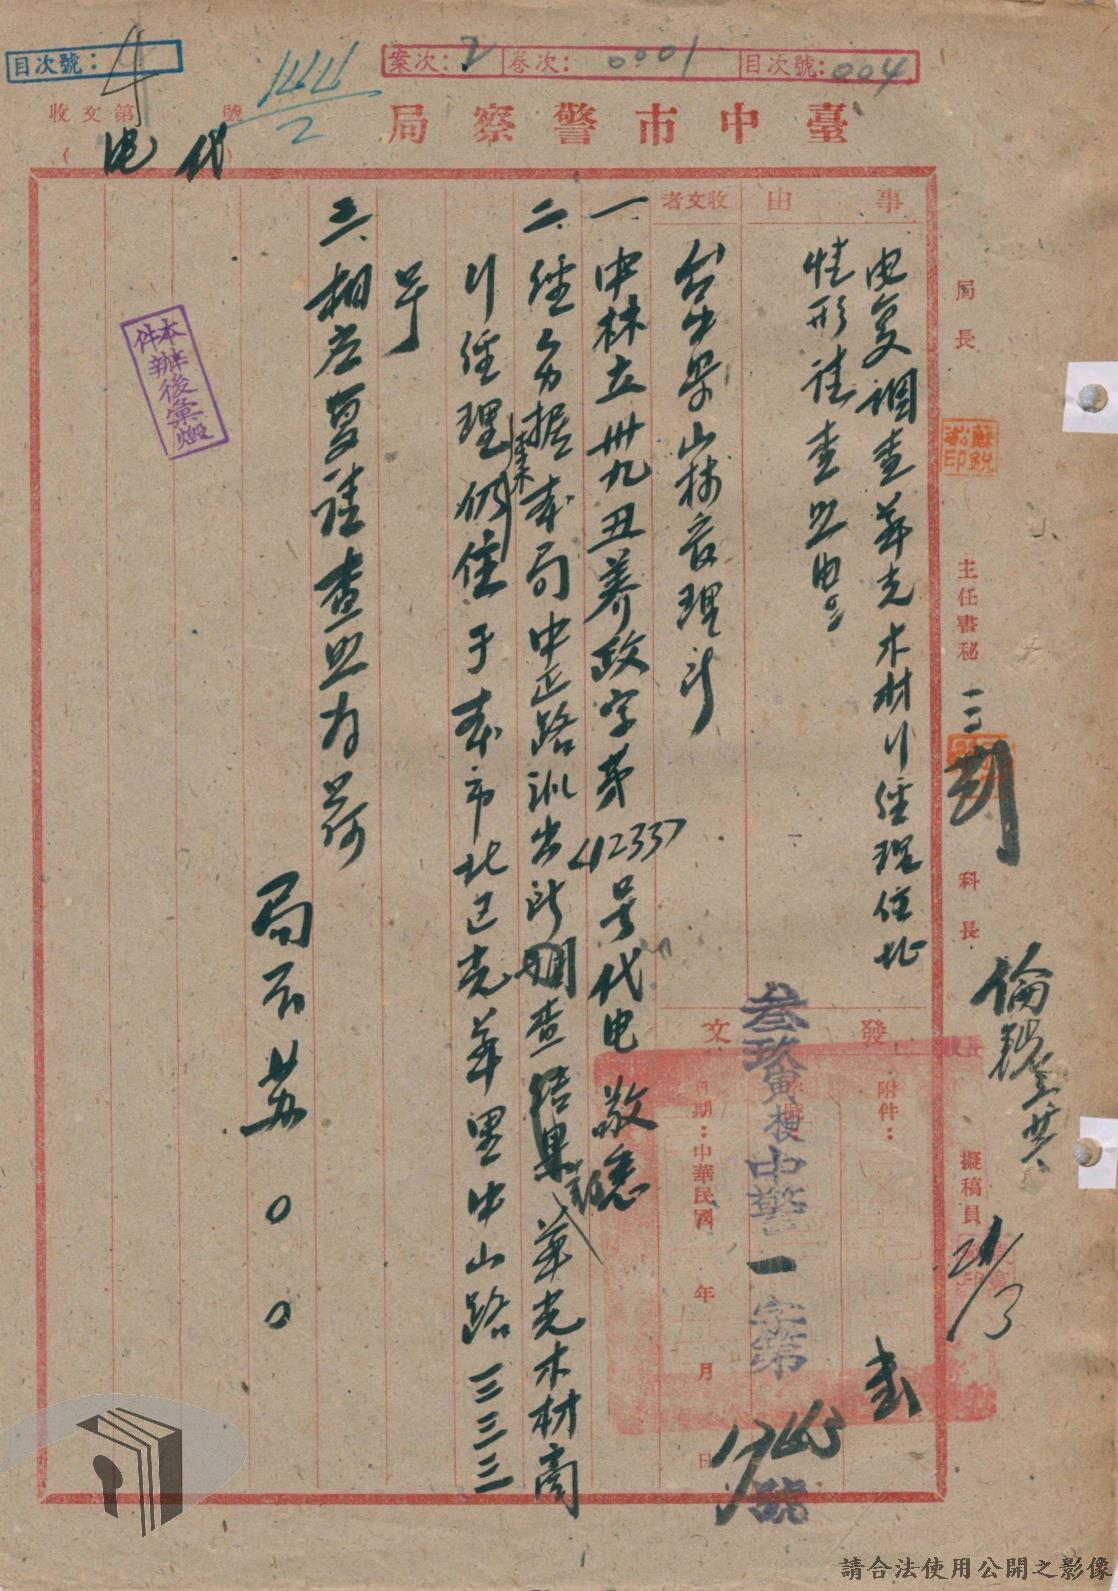 目次號：4
案次：2
卷次：0001
目次號：004
收文第 號
代電
臺中市警察局
事由
电复調查華光木材行經理住址
情形請查照由
收文者
台中縣山林管理所
發文
附件：
叁玖寅梗中警一字第1763號
日期：中華民國 年 月 日
一、中林立卅九丑養政字第4233號代电敬悉
二、經飭據本局中正路派出所調查結果華光木材商
行經理仍住于本市北區光華里中山路三三三
号
三、相应复請查照为荷
局長蘇○○
本件辦後彙燬
局長
主任書秘
科長
擬稿員
請合法使用公開之影像